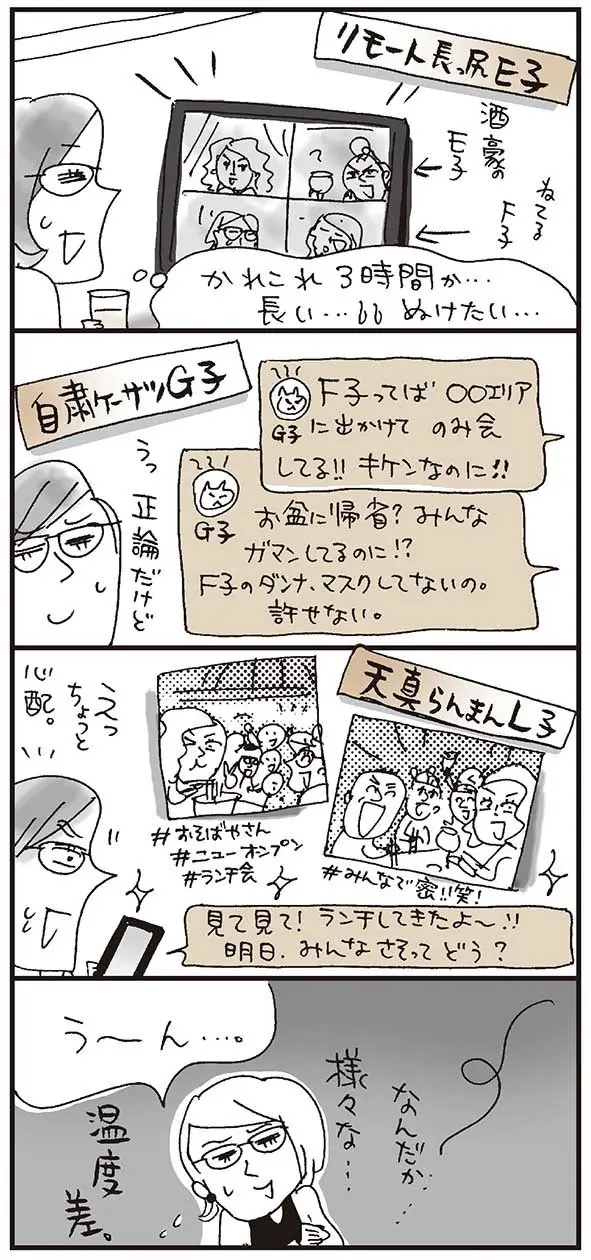 リモート長っ尻E子
酒豪の
E子
ねてる
F子
かれこれ3時間か…
長い… ぬけたい…
自粛ケーサツG子
F子ってば ○○エリア
に出かけて のみ会
してる!! キケンなのに!!
G子
お盆に帰省? みんな
ガマンしてるのに!?
F子のダンナ、マスクしてないの。
許せない。
G子
うっ 正論だけど
天真らんまんL子
えっ
ちょっと
心配。
#おそばやさん
#ニューオンプン
#ランチ会
#みんなで密!!笑!
見て見て! ランチしてきたよ〜!!
明日、みんなさそって どう?
う〜ん…。
なんだか…
様々な…
温度
差。